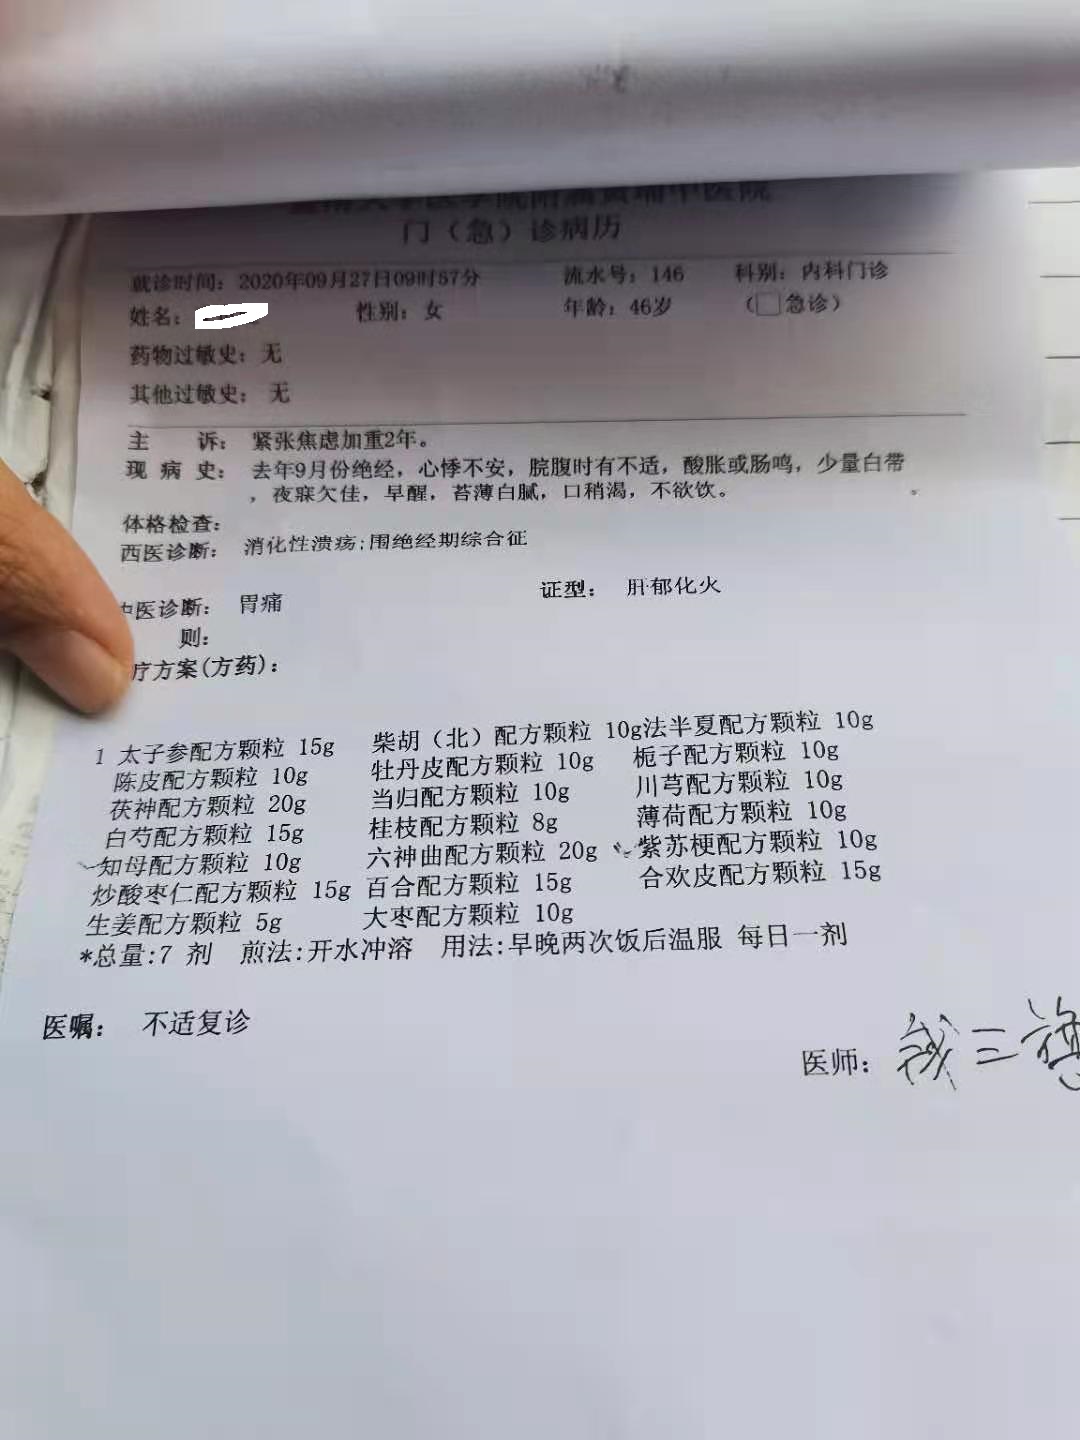 门（急）诊病历
就诊时间：2020年09月27日09时57分 流水号：146 科别：内科门诊
姓名： 性别：女 年龄：46岁 （□急诊）
药物过敏史：无
其他过敏史：无
主 诉：紧张焦虑加重2年。
现 病 史：去年9月份绝经，心悸不安，脘腹时有不适，酸胀或肠鸣，少量白带
，夜寐欠佳，早醒，苔薄白腻，口稍渴，不欲饮。
体格检查：
西医诊断：消化性溃疡;围绝经期综合征
中医诊断：胃痛 证型：肝郁化火
则：
疗方案(方药)：
1 太子参配方颗粒 15g 柴胡（北）配方颗粒 10g 法半夏配方颗粒 10g
陈皮配方颗粒 10g 牡丹皮配方颗粒 10g 栀子配方颗粒 10g
茯神配方颗粒 20g 当归配方颗粒 10g 川芎配方颗粒 10g
白芍配方颗粒 15g 桂枝配方颗粒 8g 薄荷配方颗粒 10g
知母配方颗粒 10g 六神曲配方颗粒 20g 紫苏梗配方颗粒 10g
炒酸枣仁配方颗粒 15g 百合配方颗粒 15g 合欢皮配方颗粒 15g
生姜配方颗粒 5g 大枣配方颗粒 10g
*总量:7 剂 煎法:开水冲溶 用法:早晚两次饭后温服 每日一剂
医嘱： 不适复诊
医师：